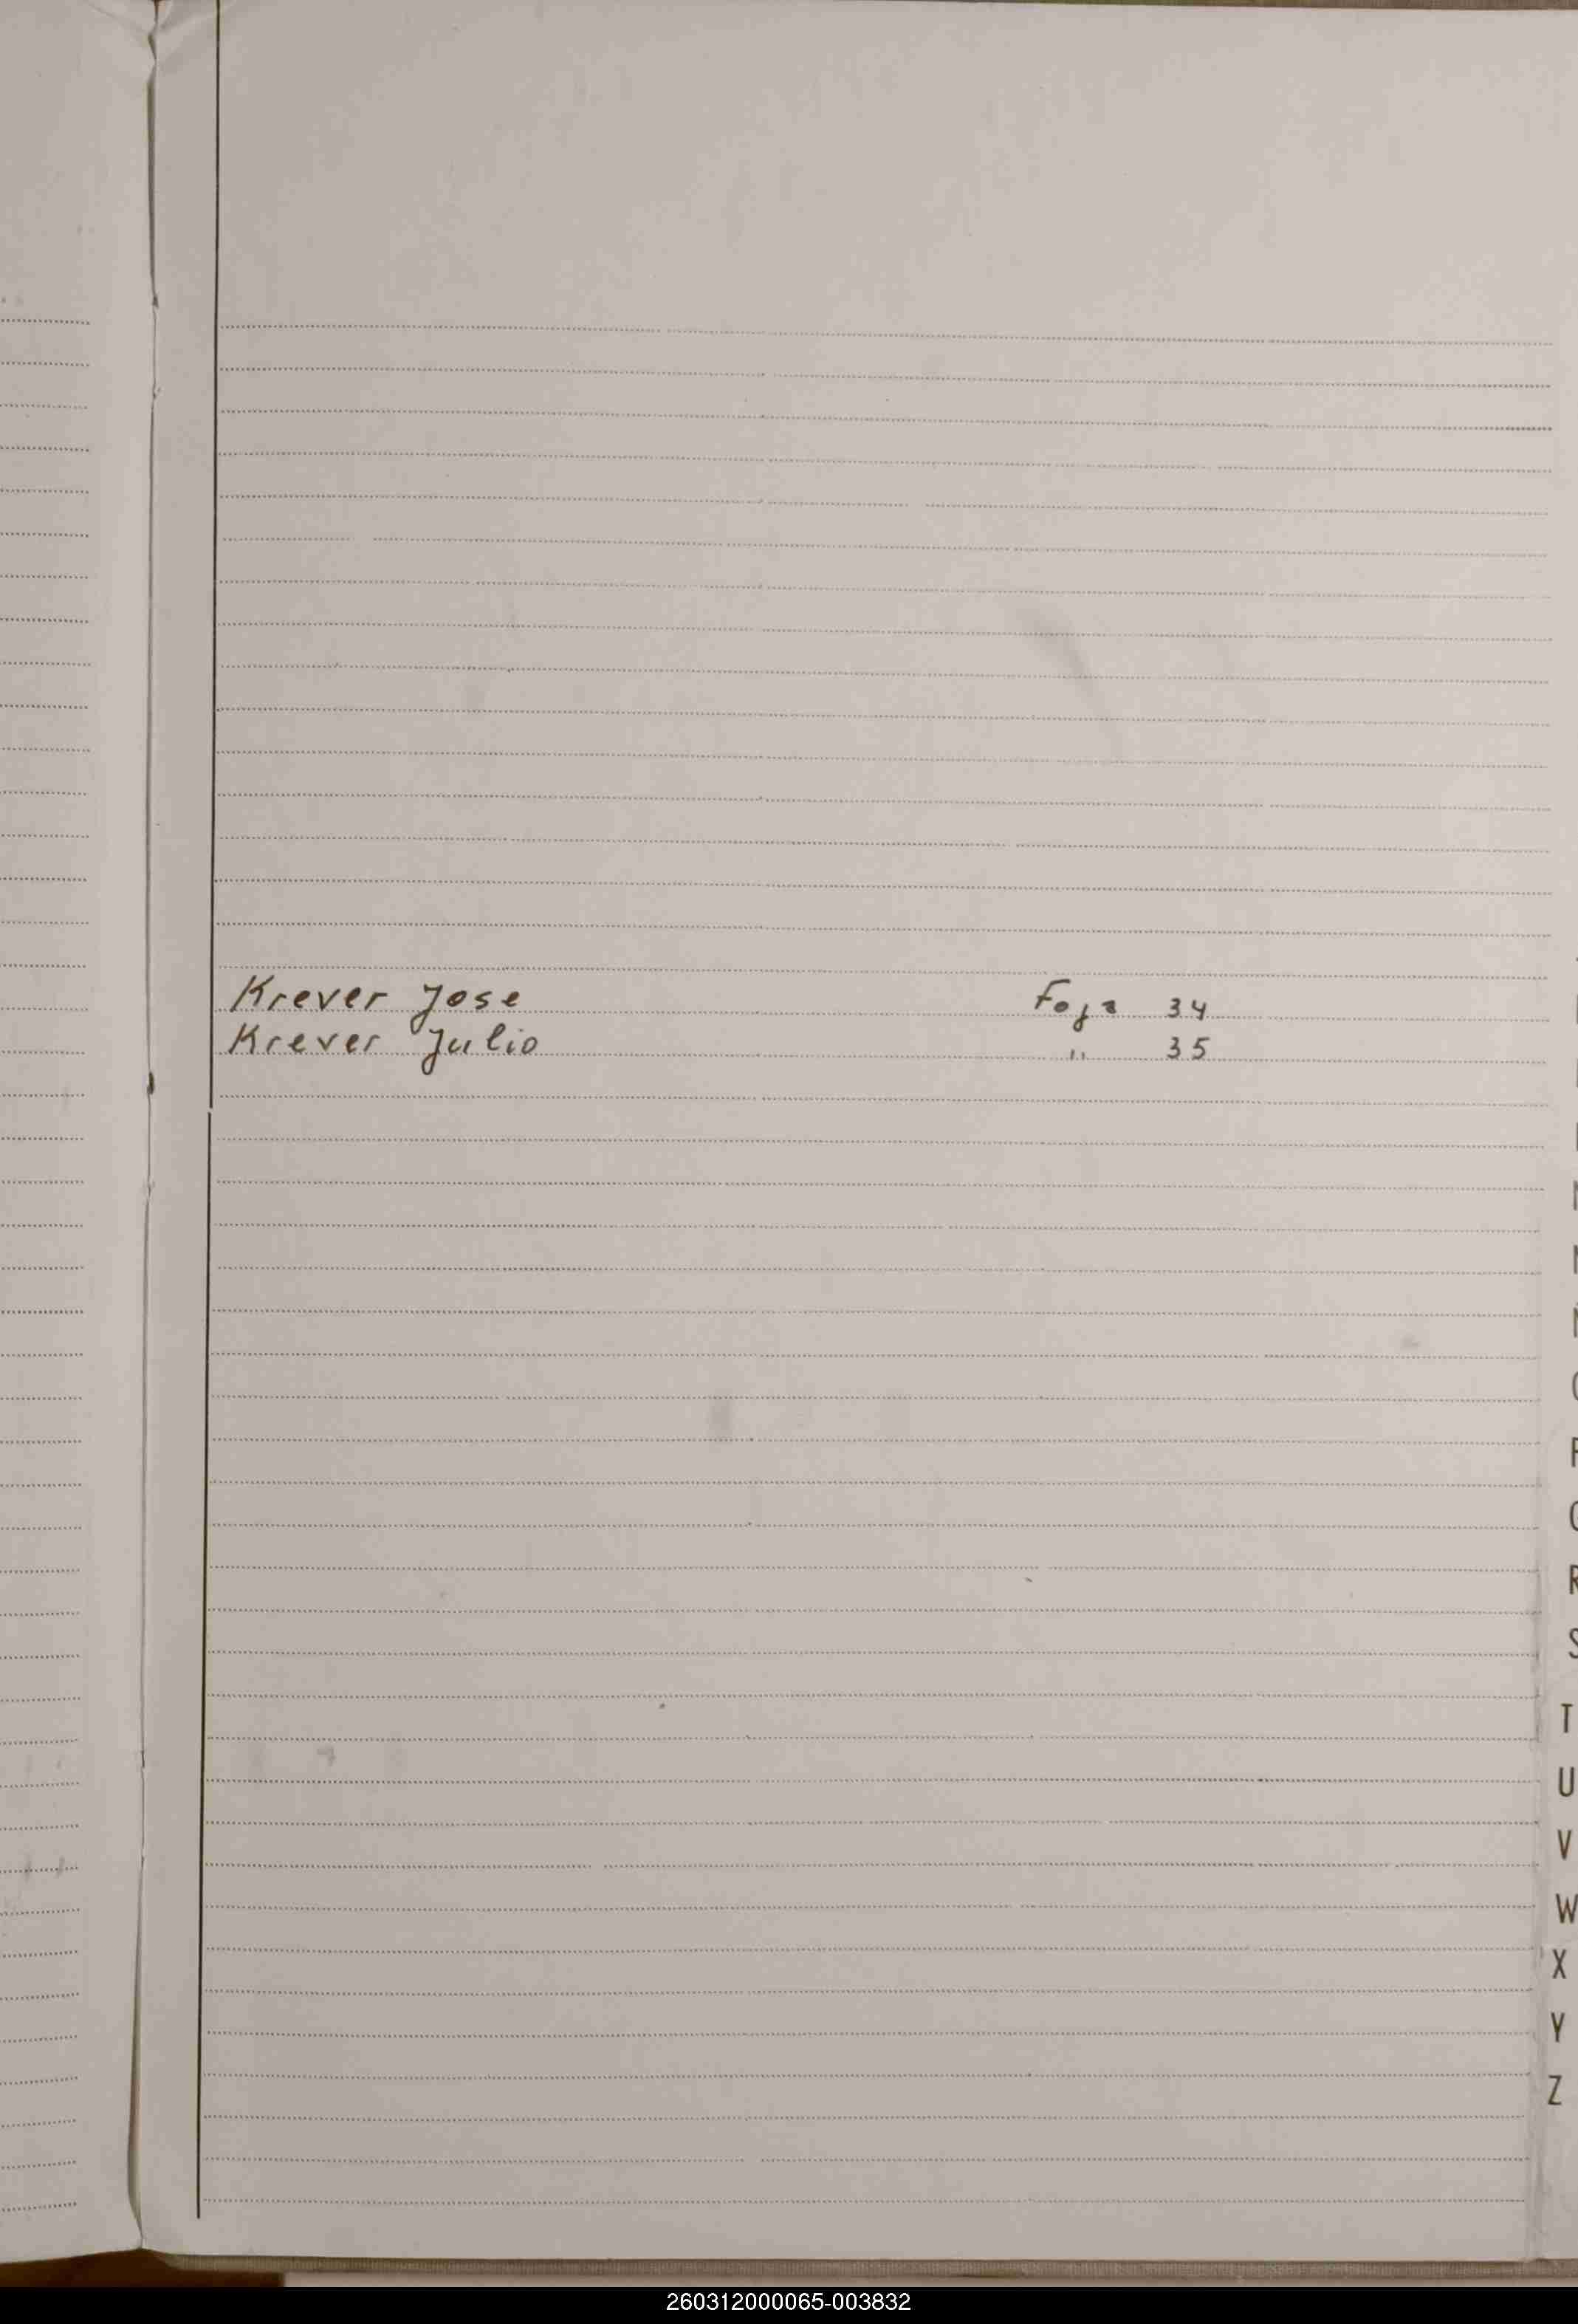 Krever Jose Foja 34
Krever Julio " 35
R
S
T
U
V
W
X
Y
Z
260312000065-003832